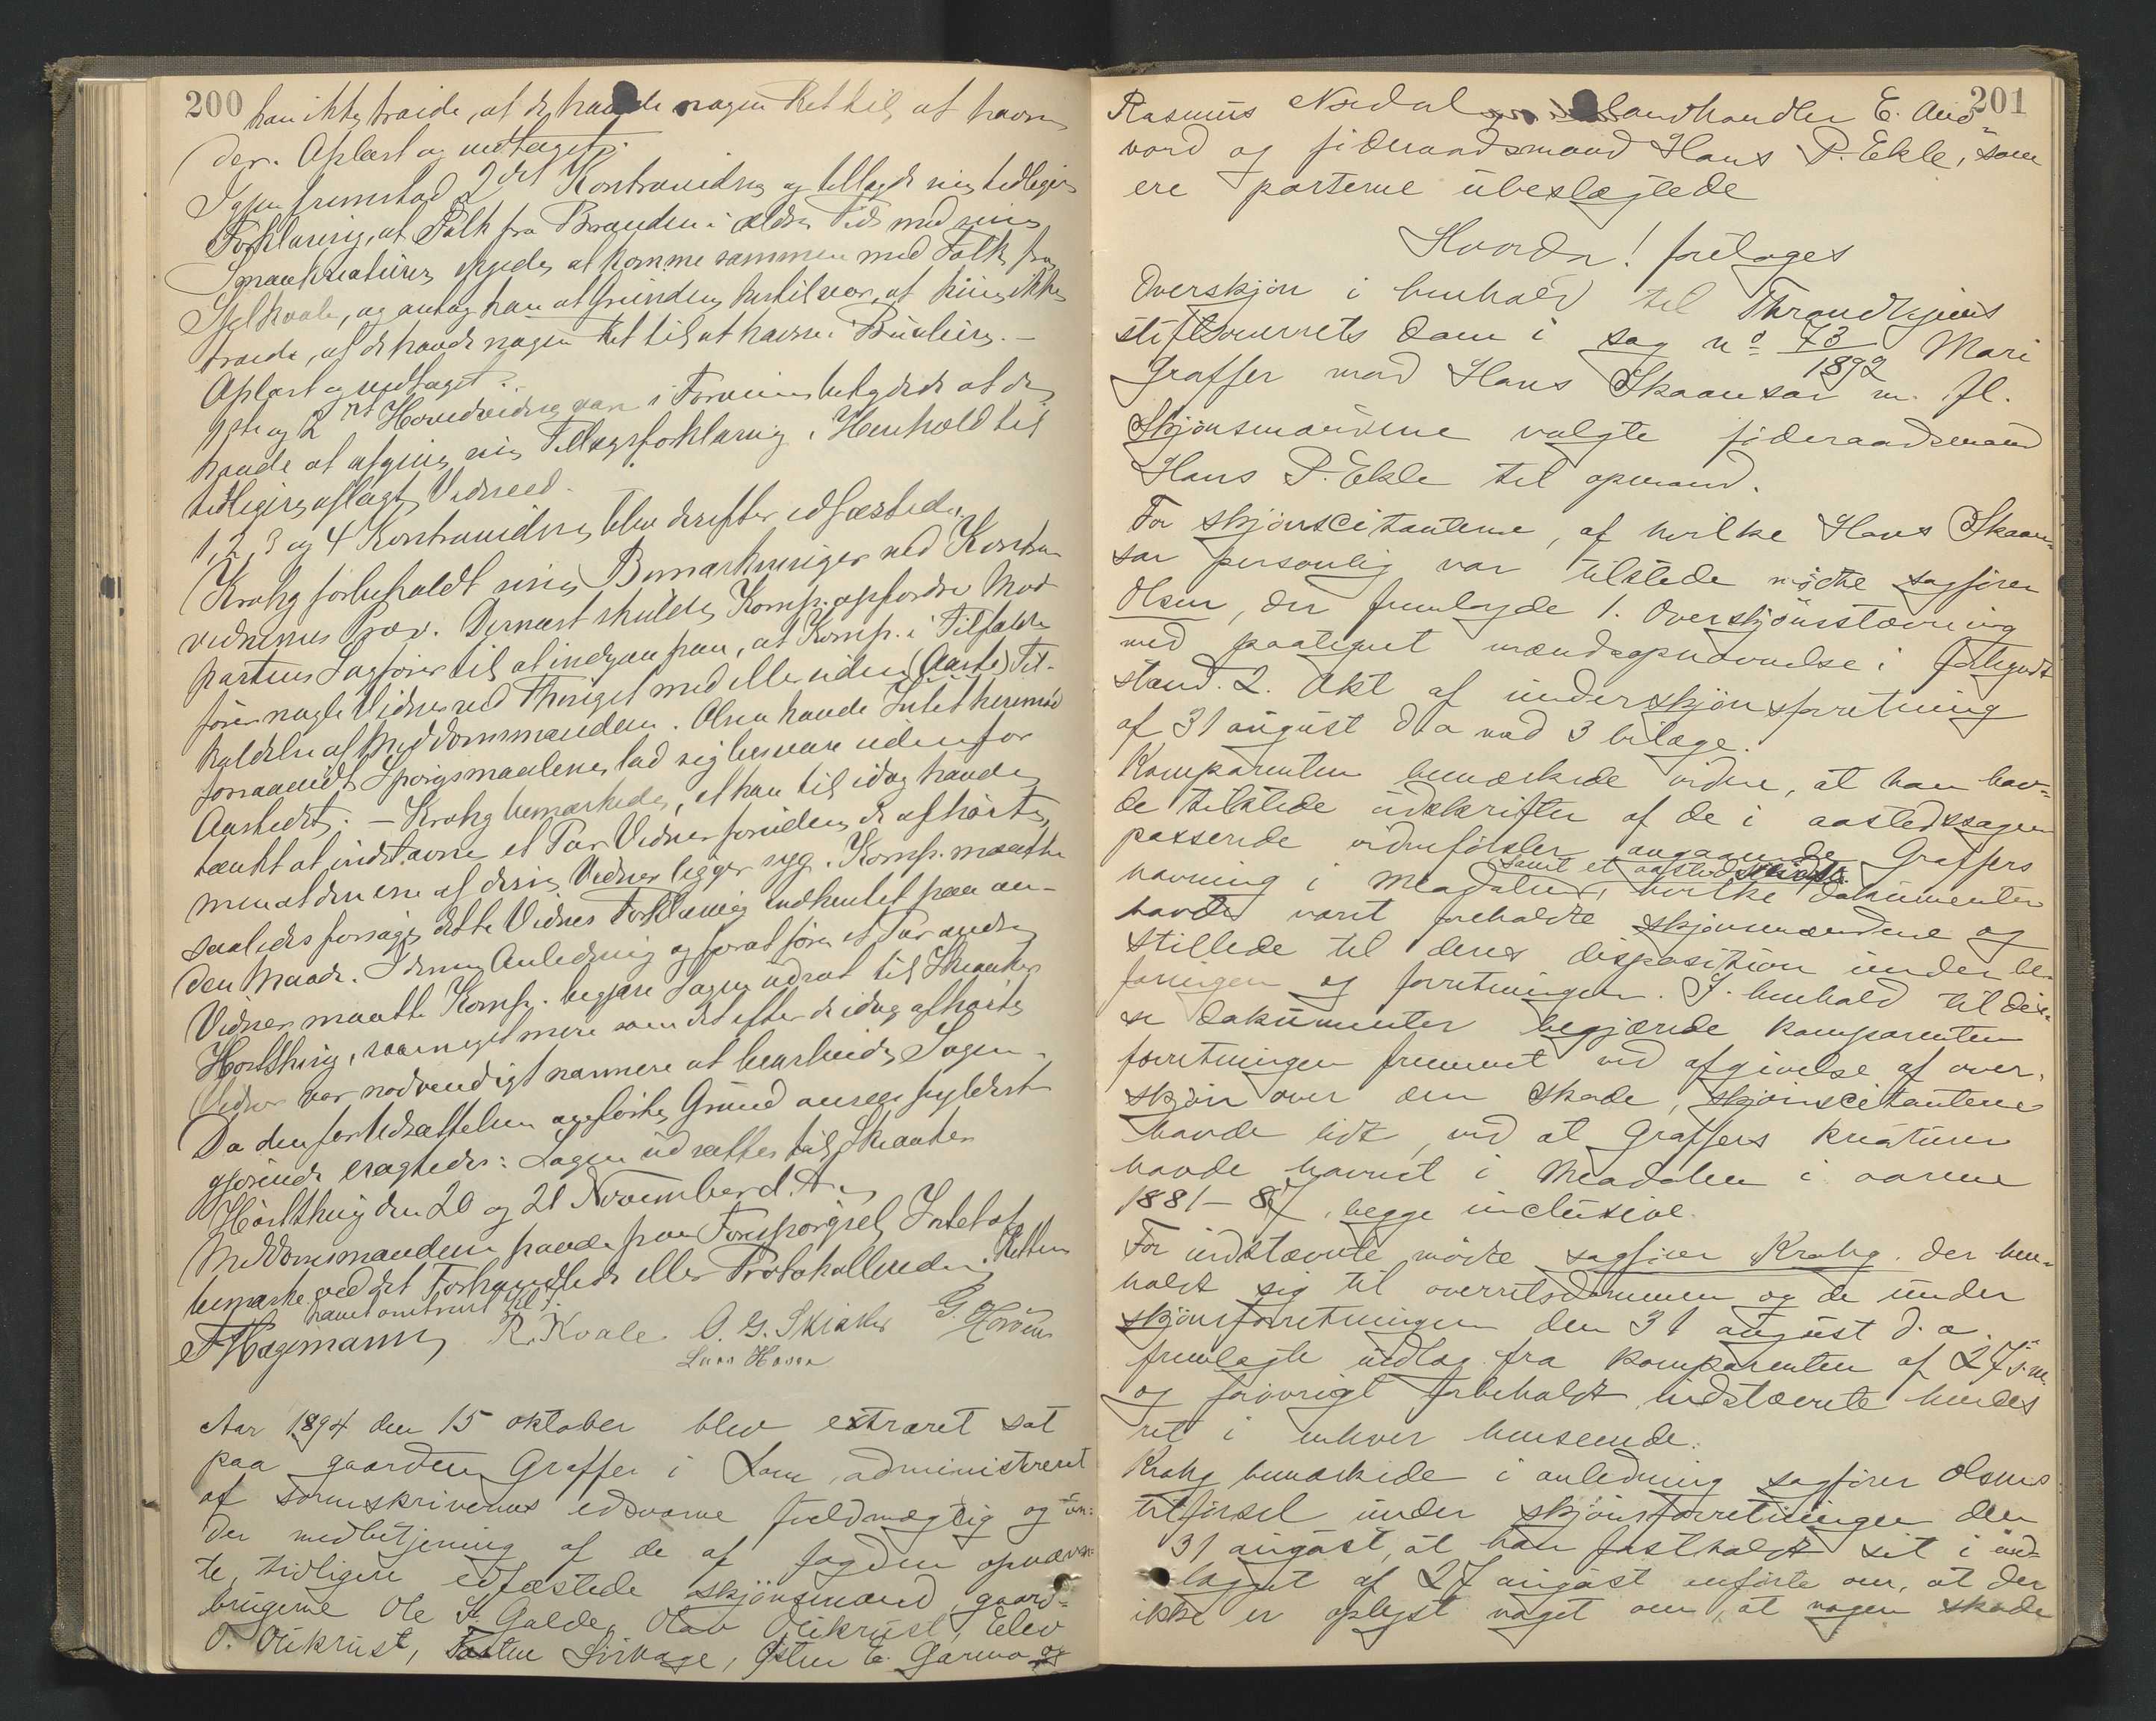 200
han ikke troede, at de havde nogen Ret til at havne
der. Oplæst og vedtaget.
Igjen fremstod 2det Kontravidne og tillagde sin tidligere
Forklaring, at Folk fra Branden i ældre Tid med sine
Smaakreaturer skyede at komme sammen med Folk fra
Skjelkvale, og antog han at Grunden hertil var, at hine ikke
troede, at de havde nogen Ret til at havne i Buuleire. —
Oplæst og vedtaget.
1ste og 2det Hovedvidne var i Forveien betydet at de
havde at afgive sin Tillægsforklaring i Henhold til
tidligere aflagt Vidneed.
1, 2, 3 og 4 Kontravidne blev derefter edfæstede.
Krohg forbeholdt sine Bemærkninger ved Kontra-
vidnernes Prov. Dernæst skulde Komp. opfordre Mod-
partens Sagfører til at indgaa paa, at Komp. i Tilfælde
fører nogle Vidner ved Thinget med eller uden (Aasteds) Til-
kaldelse af Meddomsmændene. Olsen havde Intet herimod
forsaavidt Spørgsmaalene lod sig besvare udenfor
Aastedet. — Krohg bemærkede, at han til idag havde
tænkt at indstævne et Par Vidner foruden de afhørte,
men at den ene af disse Vidner ligger syg. Komp. maatte
saaledes forsøge dette Vidnes Forklaring indhentet paa an-
den Maade. I denne Anledning og forat føre et Par andre
Vidner maatte Komp. begjære Sagen udsat til Skiaker
Høstthing, saameget mere som det efter de idag afhørte
Vidner var nødvendigt nærmere at bearbeide Sagen.
Da den for Udsættelsen anførte Grund ansees fyldest-
gjørende eragtedes: Sagen udsættes til Skiaker
Høstthing den 20 og 21 November d. A.
Meddomsmændene havde paa Forespørgsel Intet at
bemærke ved det Forhandlede eller Protokollerede. Retten
hævet omtrent Kl 7.
Hagemann R. Kvale O. G. Skiaker G. Horven
Lars Hosar
Aar 1894 den 15 oktober blev extraret sat
paa gaarden Graffer i Lom administreret
af sorenskriverens edsvorne fuldmægtig og un:
der medbetjening af de af fogden opnævn:
te, tidligere edfæstede skjønsmænd, gaard=
brugerne Ole K. Galde, Olav Olikrust, Elev
O. Olikrust, Torsten Sivhage, Østen E. Garmo og
201
Rasmus Nordal, landhandler E. And
vord og føderaadsmand Hans P. Ekle, som
ere parterne ubeslægtede
Hvorda! foretoges
Overskjøn i henhold til Throndhjems
stiftsoverrets dom i sag no 73/1892 Mari
Graffer mod Hans Skaansar m. fl.
Skjønsmændene valgte føderaadsmand
Hans P. Ekle til opmand.
For skjønscitanterne, af hvilke Hans Skaan=
sar personlig var tilstede mødte sagfører
Olsen, der fremlagde 1. Overskjønsstævning
med paategnet mændsopnævnelse i forkyndt
stand. 2. Akt af underskjønsforretning
af 31 august d a med 3 bilage.
Komparenten bemærkede videre, at han hav=
de tilstede udskrifter af de i aastedssagen
passerede vidneførsler angaaende Graffers
samt et aastedskart
havning i Meadalen, hvilke dokumenter
havde været foreholdte skjønsmændene og
stillede til deres disposition under be-
faringen og forretningen. I henhold til dis-
se dokumenter begjærede komparenten
forretningen fremmet ved afgivelse af over-
skjøn over den skade, skjønscitanterne
havde lidt, ved at Graffers kreaturer
havde havnet i Meadalen i aarene
1881–87, begge inclusive.
For indstævnte mødte sagfører Krohg, der hen=
holdt sig til overretsdommen og de under
skjønsforretningen den 31 august d. a.
fremlagte indlæg fra komparenten af 27 s. m.
og forøvrigt forbeholdt indstævnte hendes
ret i enhver henseende.
Krohg bemærkede i anledning sagfører Olsens
tilførsel under skjønsforretningen den
31 august, at han fastholdt sit i ind-
lægget af 27 august anførte om, at der
ikke er oplyst noget om, at nogen skade